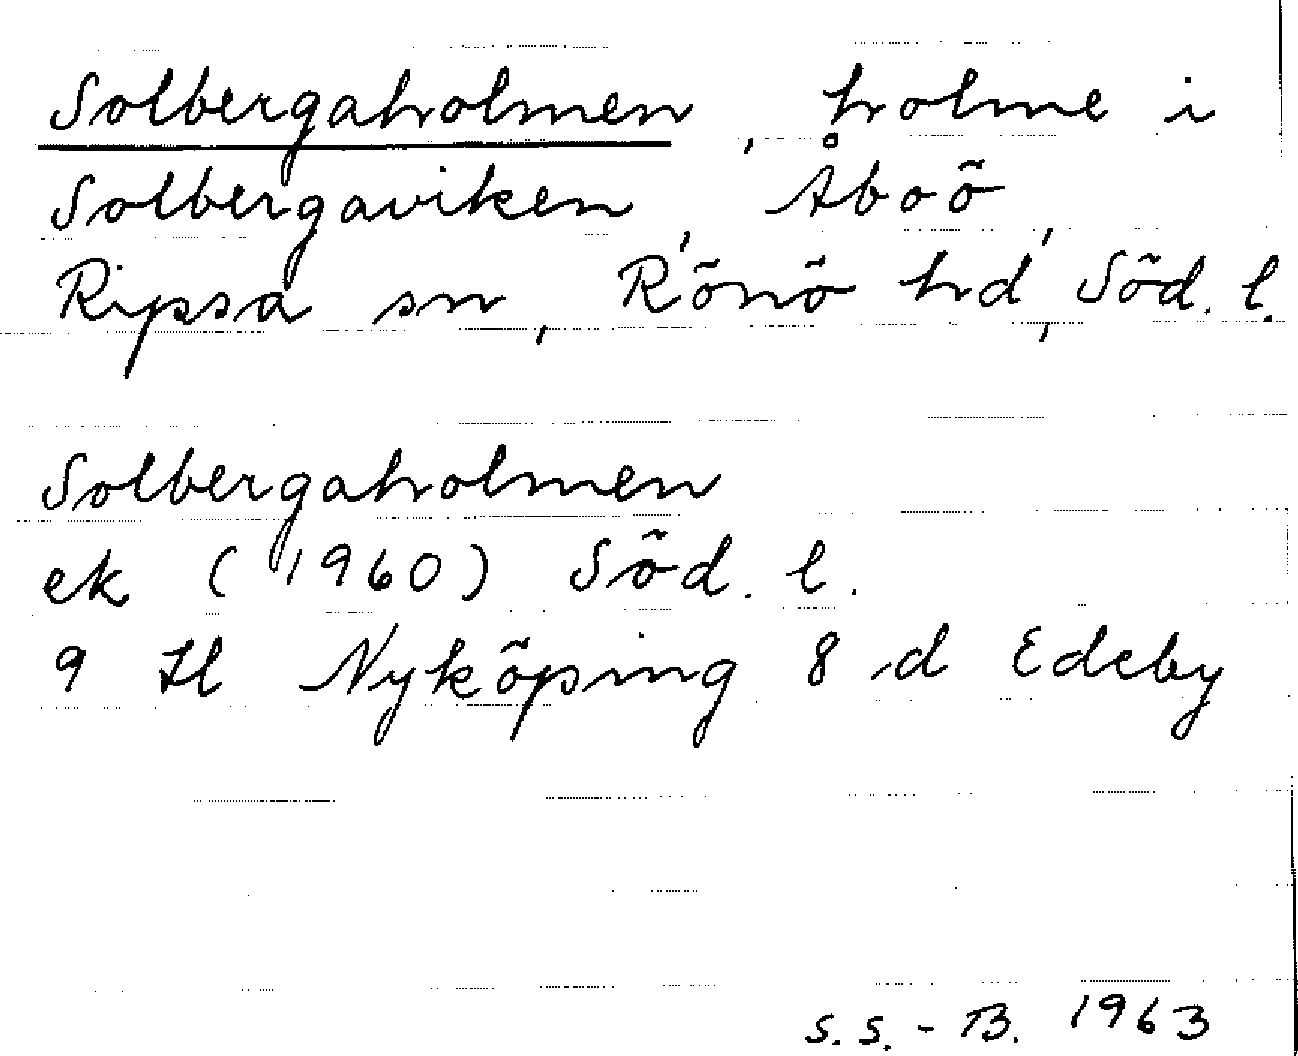 Solbergaholmen, holme i
Solbergaviken, Åboö,
Ripsa sn, Rönö hd, Söd. l.
Solbergaholmen
ek (1960) Söd. l.
9 H Nyköping 8 d Edeby
S.S.-B. 1963